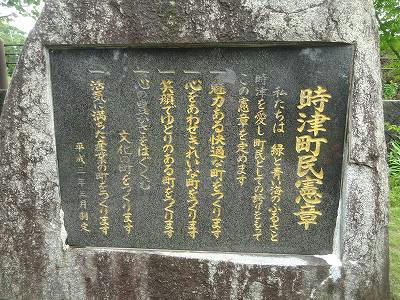 時津町民憲章
私たちは 緑と青い海のふるさと
時津を愛し 町民としての誇りをもって
この憲章を定めます
一 魅力ある快適な町をつくります
一 心をあわせきれいな町をつくります
一 笑顔でゆとりのある町をつくります
一 心の豊かさをはぐくむ
文化の町をつくります
一 活気に満ちた産業の町をつくります